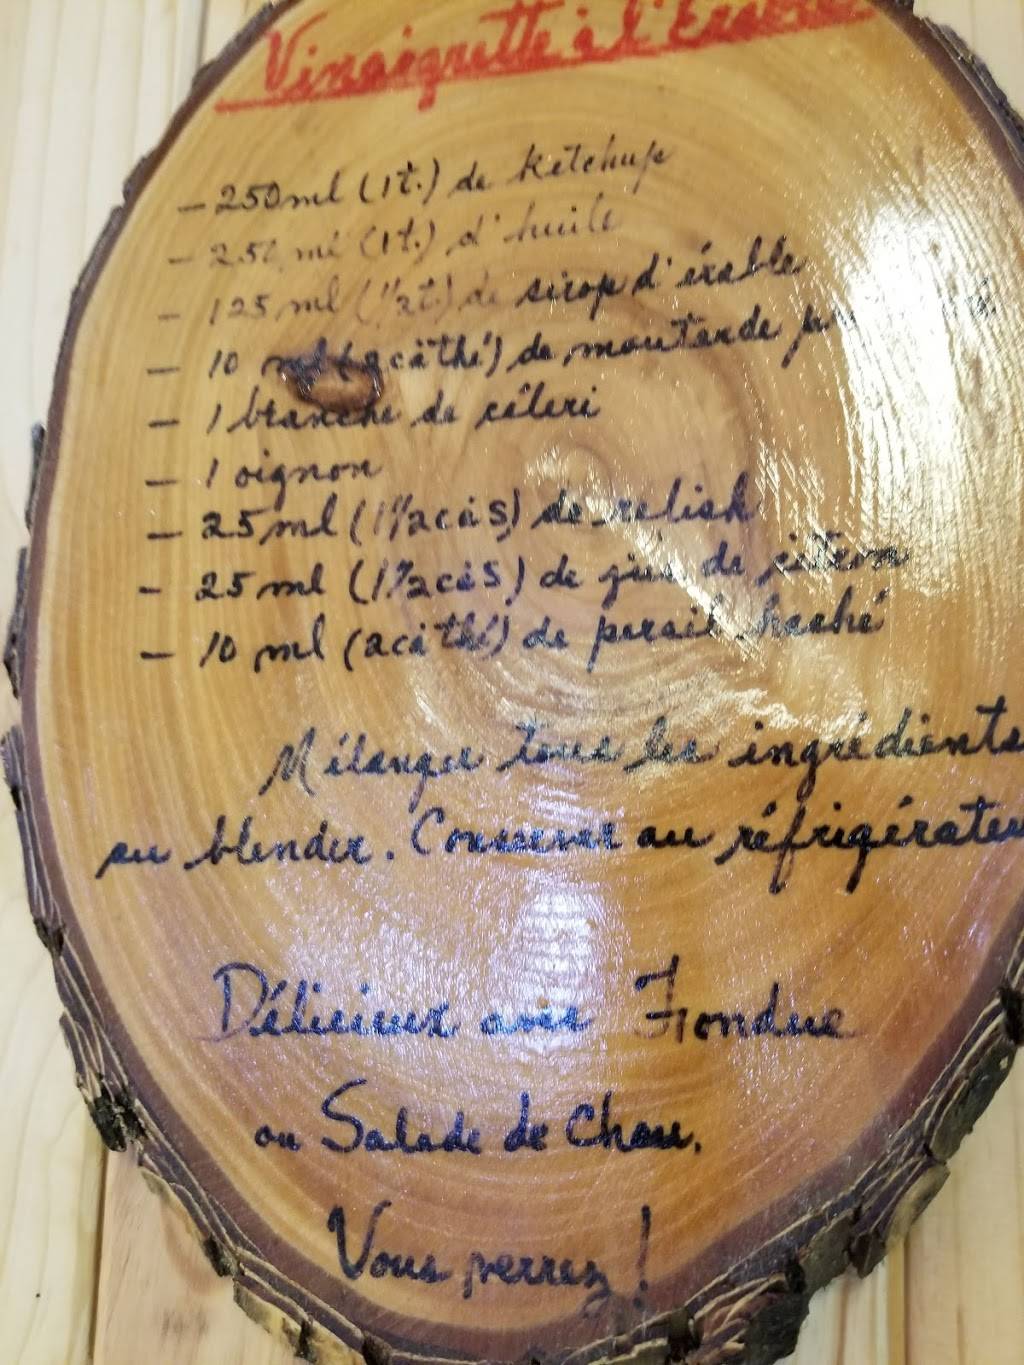 Vinaigrette à l'Érable
- 250 ml (1 t.) de ketchup
- 250 ml (1 t.) d'huile
- 125 ml (1/2 t.) de sirop d'érable
- 10 ml (2 c à thé) de moutarde
- 1 branche de céleri
- 1 oignon
- 25 ml (1 1/2 c à s) de relish
- 25 ml (1 1/2 c à s) de jus de citron
- 10 ml (2 c à thé) de persil haché
Mélanger tous les ingrédients
au blender. Conserver au réfrigérateur
Délicieux avec Fondue
ou Salade de Chou.
Vous verrez !